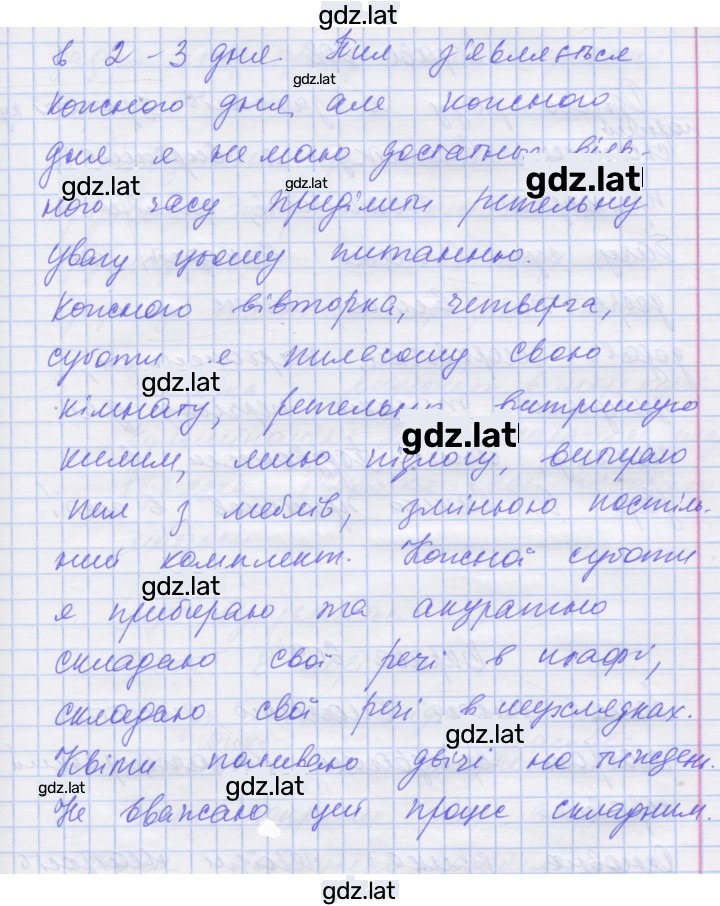 gdz.lat
в 2-3 дня. Пил з'являється
gdz.lat
кожного дня, але кожного
дня я не маю достатньо віль-
gdz.lat gdz.lat gdz.lat
ного часу приділити ретельну
увагу цьому питанню.
Кожного вівторка, четверга,
суботи я пилесошу свою
gdz.lat
кімнату, ретельно витрушую
gdz.lat
килим, мию підлогу, витираю
пил з меблів, змінюю постіль-
ний комплект. Кожної суботи
gdz.lat
я прибираю та акуратно
складаю свої речі в шафі,
складаю свої речі в шухлядках.
gdz.lat
Квіти поливаю двічі на тиждень.
gdz.lat gdz.lat
Не вважаю цей процес складним.
gdz.lat